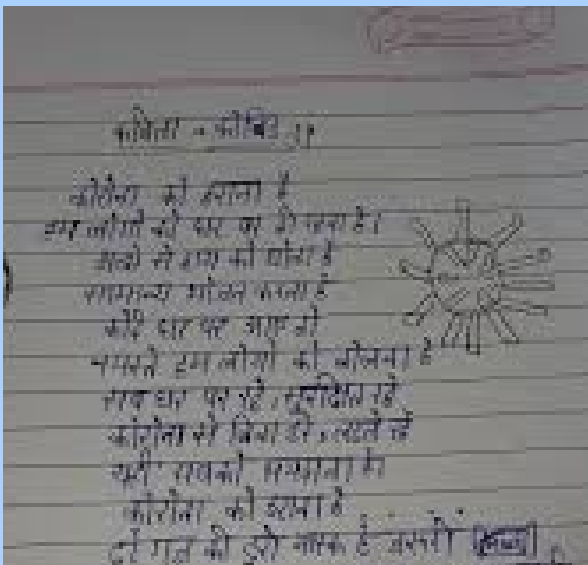 कविता - कोविड 19
कोरोना को हराना है
हम लोगों को घर पर ही रहना है।
से हाथ को धोना है
सामान्य भोजन करना है
कोई घर पर आए तो
नमस्ते हम लोगों को बोलना है
सब घर पर रहे, सुरक्षित रहे
कोरोना से बिना डरे, लड़ते रहे
यही सबको समझाना है।
कोरोना को हराना है
दो गज की दूरी मास्क है जरूरी